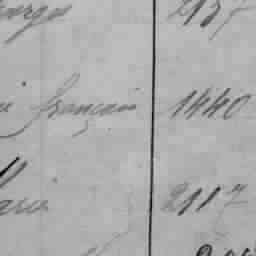 orges 2137
français 1440
arie 2117